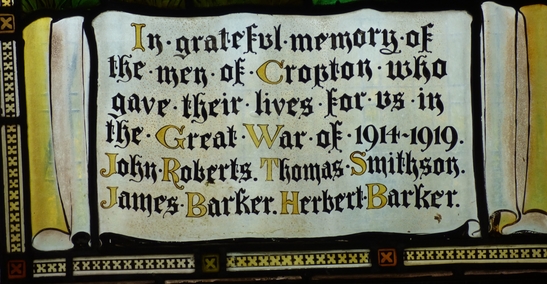 In·grateful·memory·of
the·men·of·Cropton·who
gave·their·lives·for·us·in
the·Great·War·of·1914-1919.
John·Roberts.Thomas·Smithson.
James·Barker.Herbert·Barker.